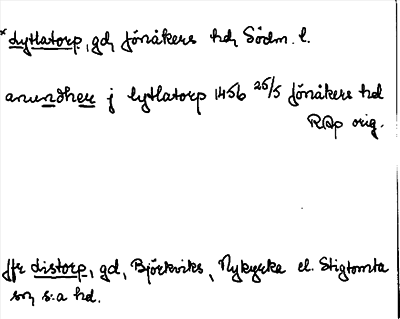 * Lyttatorp, gd, Jönåkers hd, Södm. l.
anundher j lyttatorp 1456 25/5 Jönåkers hd
RAp orig.
Jfr Distorp, gd, Björkviks, Nykyrka el. Stigtomta
sn, s:a hd.